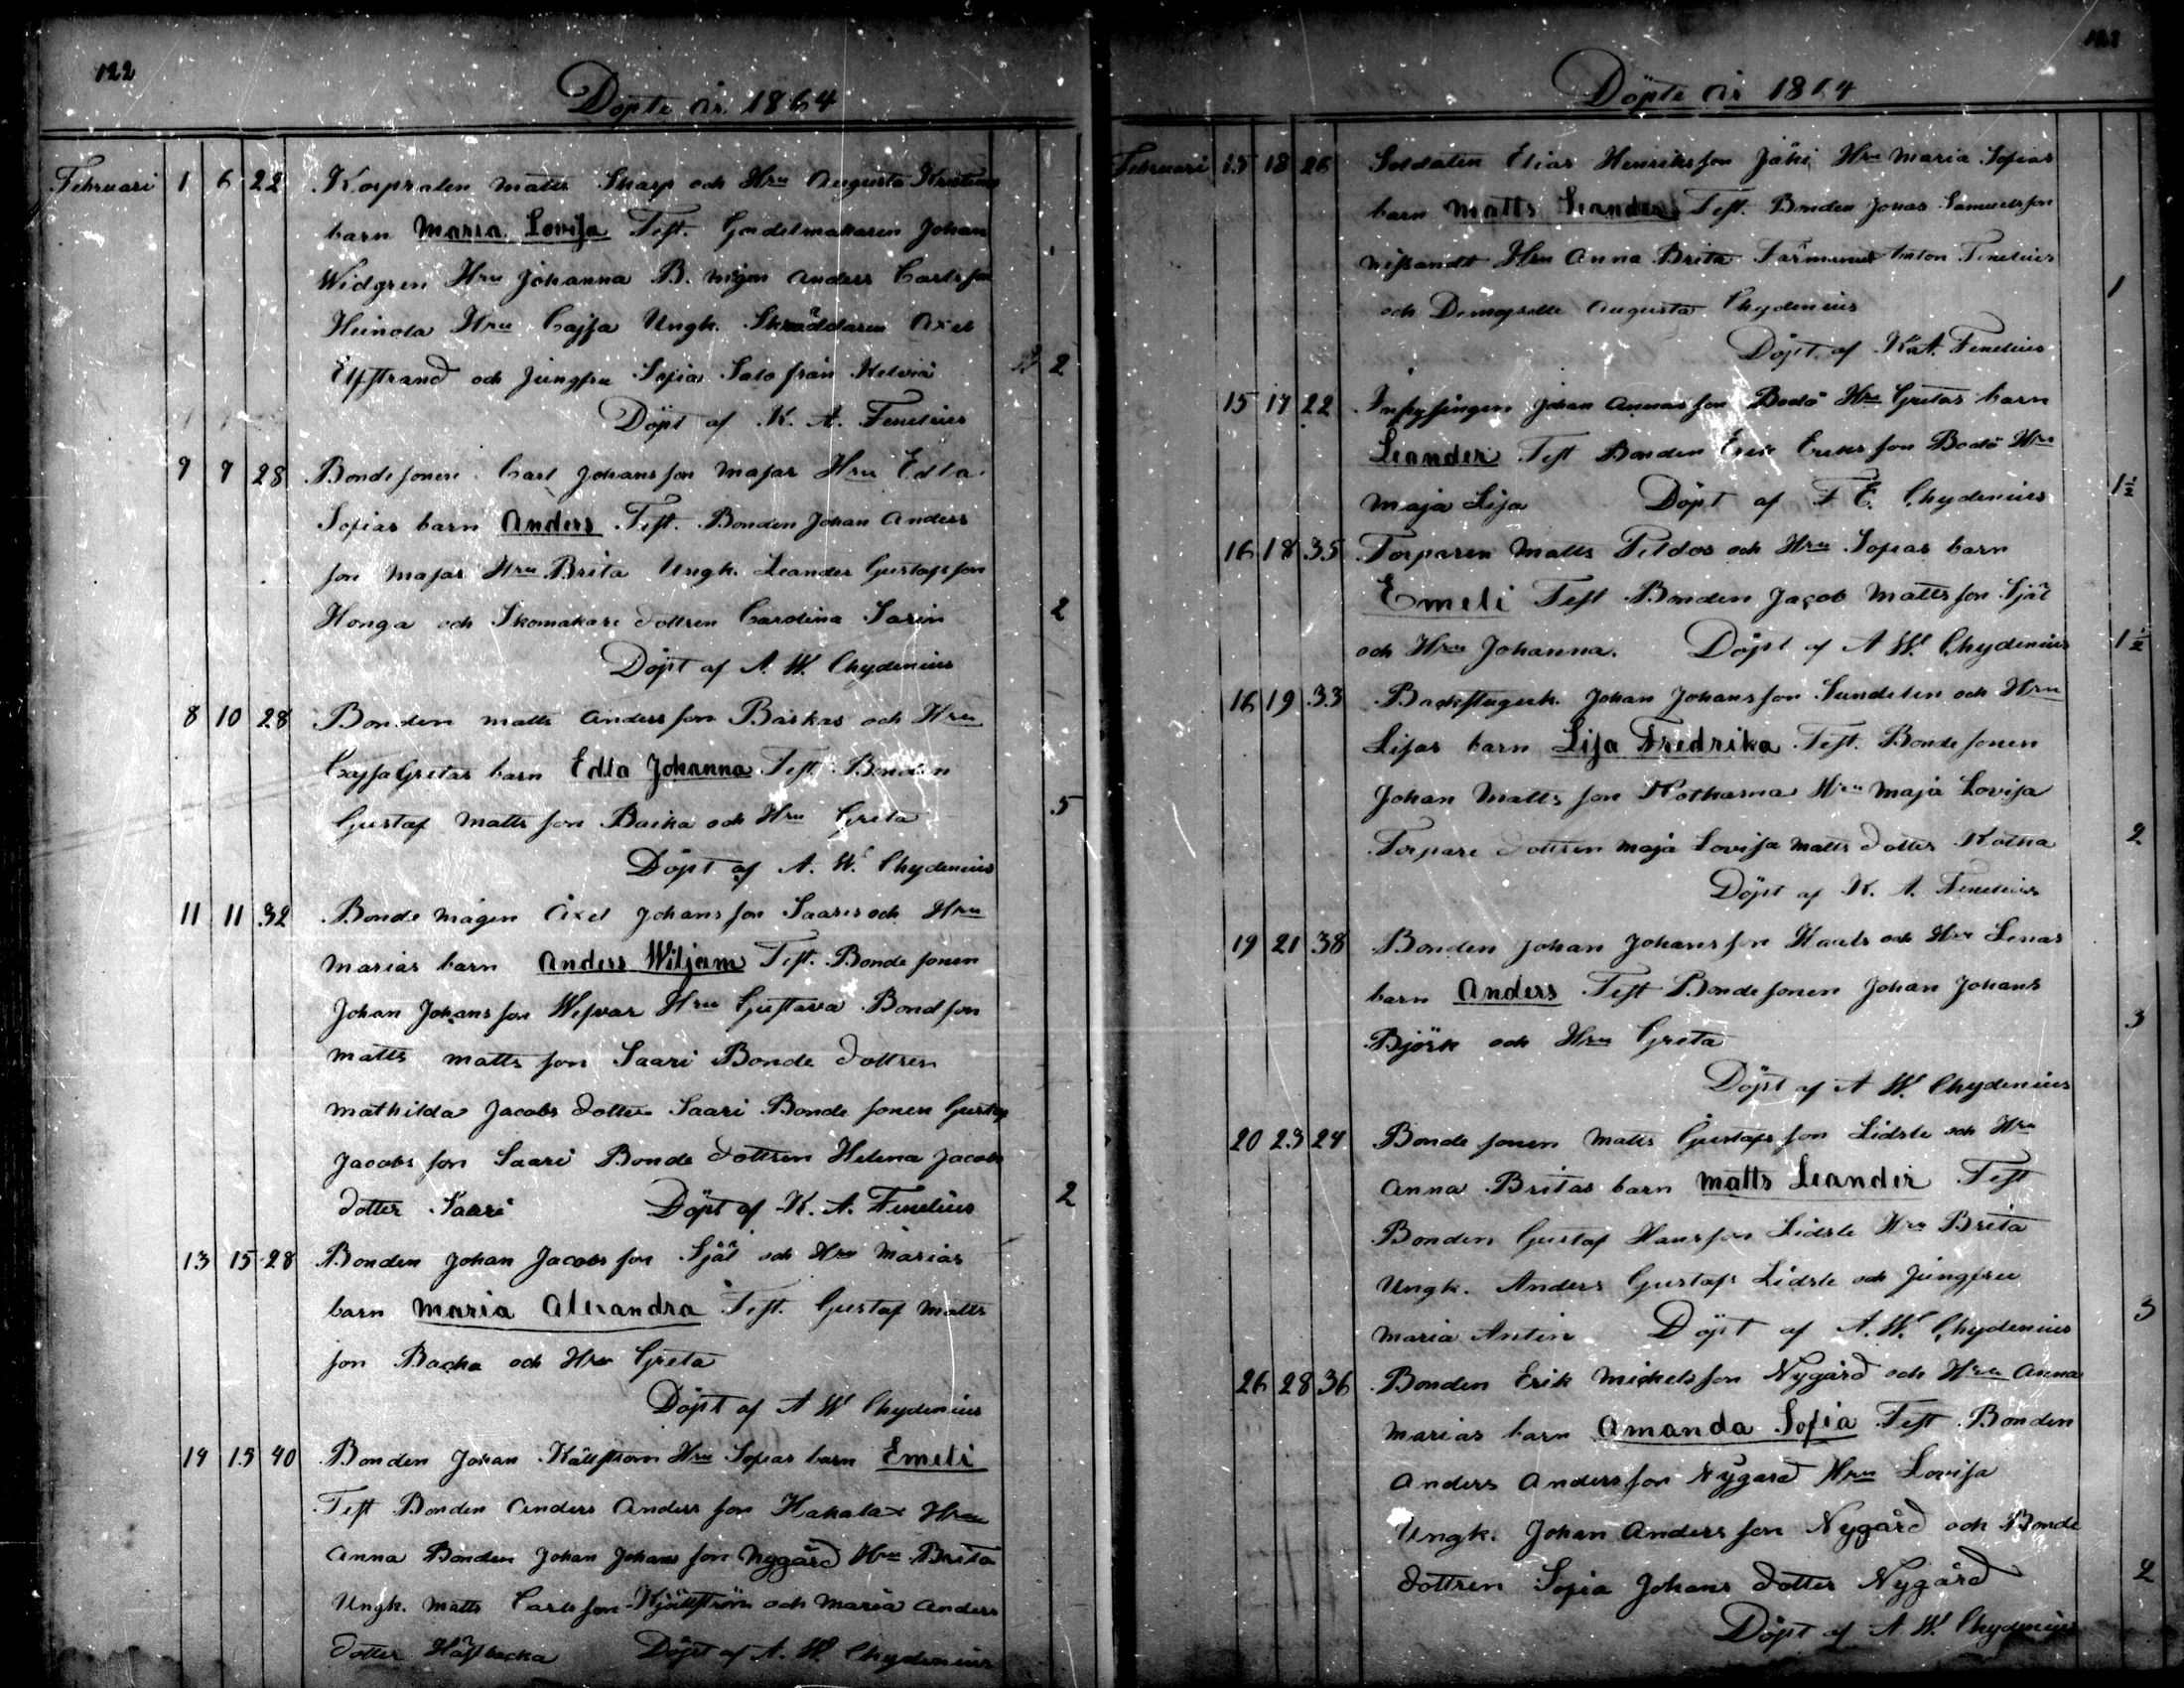 122
Döpte år 1864
Februari 1 6 22 Korpralen Matts Skarp och Hru Augusta Kristinas
barn Maria Lovisa Test. Gördelmakaren Johan
Widgren Hru Johanna B. mågen Anders Carlsson
Heinola Hru Cajsa Ungk. Skräddaren Axel
Elfstrand och Jungfru Sofia Salo från Kelviå 2
Döpt af K. A. Fenelius
9 9 28 Bondesonen Carl Johansson Majas Hru Edla
Sofias barn Anders Test. Bonden Johan Anders
son Majas Hru Brita Ungk. Leander Gustafsson
Honga och Skomakare dottren Carolina Sarin 2
Döpt af A. W. Chydenius
8 10 28 Bonden Matts Andersson Båskas och Hru
Cajsa Gretas barn Edla Johanna Test Bonden
Gustaf Mattsson Backa och Hru Greta 5
Döpt af A. W. Chydenius
11 11 32 Bonde mågen Axel Johansson Saaris och Hru
Marias barn Anders Wiljam Test. Bonde sonen
Johan Johansson Wefvar Hru Gustava Bondson
Matts Mattsson Saari Bonde dottren
Mathilda Jacobs dotter Saari Bonde sonen Gustaf
Jacobsson Saari Bonde dottren Helena Jacobs
dotter Saari Döpt af K. A. Fenelius 2
13 15 28 Bonden Johan Jacobsson Sjål och Hru Marias
barn Maria Alexandra Test. Gustaf Matts
son Backa och Hru Greta
Döpt af A W Chydenius
14 15 40 Bonden Johan Källström Hru Sofias barn Emeli
Test Bonden Anders Andersson Kakalax Hru
Anna Bonden Johan Johansson Nygård Hru Brita
Ungk. Matts Carlsson Kjällström och Maria Anders
dotter Håstbacka Döpt af A. W. Chydenius
123
Döpte år 1864
Februari 15 18 26 Soldaten Elias Henriksson Jäki Hru Maria Sofias
barn Matts Leander Test. Bonden Jonas Samuelsson
Hru Anna Brita Anton Fenelius
och Demoiselle Augusta Chydenius 1
Döpt af K A. Fenelius
15 17 22 Inhysingen Johan Annasson Bodö Hru Gretas barn
Leander Test Bonden Erik Eriksson Bodö Hru
Maja Lisa Döpt af F E. Chydenius 1½
16 18 35 Torparen Matts Peldos och Hru Sofias barn
Emeli Test Bonden Jacob Mattsson Sjål
och Hru Johanna. Döpt af A W. Chydenius 1½
16 19 33 Backstuguk. Johan Johansson Sundelin och Hru
Lisas barn Lisa Fredrika Test. Bonde sonen
Johan Mattsson Hru Maja Lovisa
Torpare dottren Maja Lovisa Matts dotter Kotka 2
Döpt af K. A. Fenelius
19 21 38 Bonden Johan Johansson och Hru Lenas
barn Anders Test Bonde sonen Johan Johans
Björk och Hru Greta 3
Döpt af A W. Chydenius
20 23 24 Bonde sonen Matts Gustafsson Lidsle och Hru
Anna Britas barn Matts Leander Test
Bonden Gustaf Hansson Lidsle Hru Brita
Ungk. Anders Gustafs Lidsle och Jungfru
Maria Antin Döpt af A. W. Chydenius 3
26 28 36 Bonden Erik Mickelsson Nygård och Hru Anna
Marias barn Amanda Sofia Test Bonden
Anders Andersson Nygård Hru Lovisa
Ungk. Johan Andersson Nygård och Bonde
dottren Sofia Johans dotter Nygård 2
Döpt af A W. Chydenius